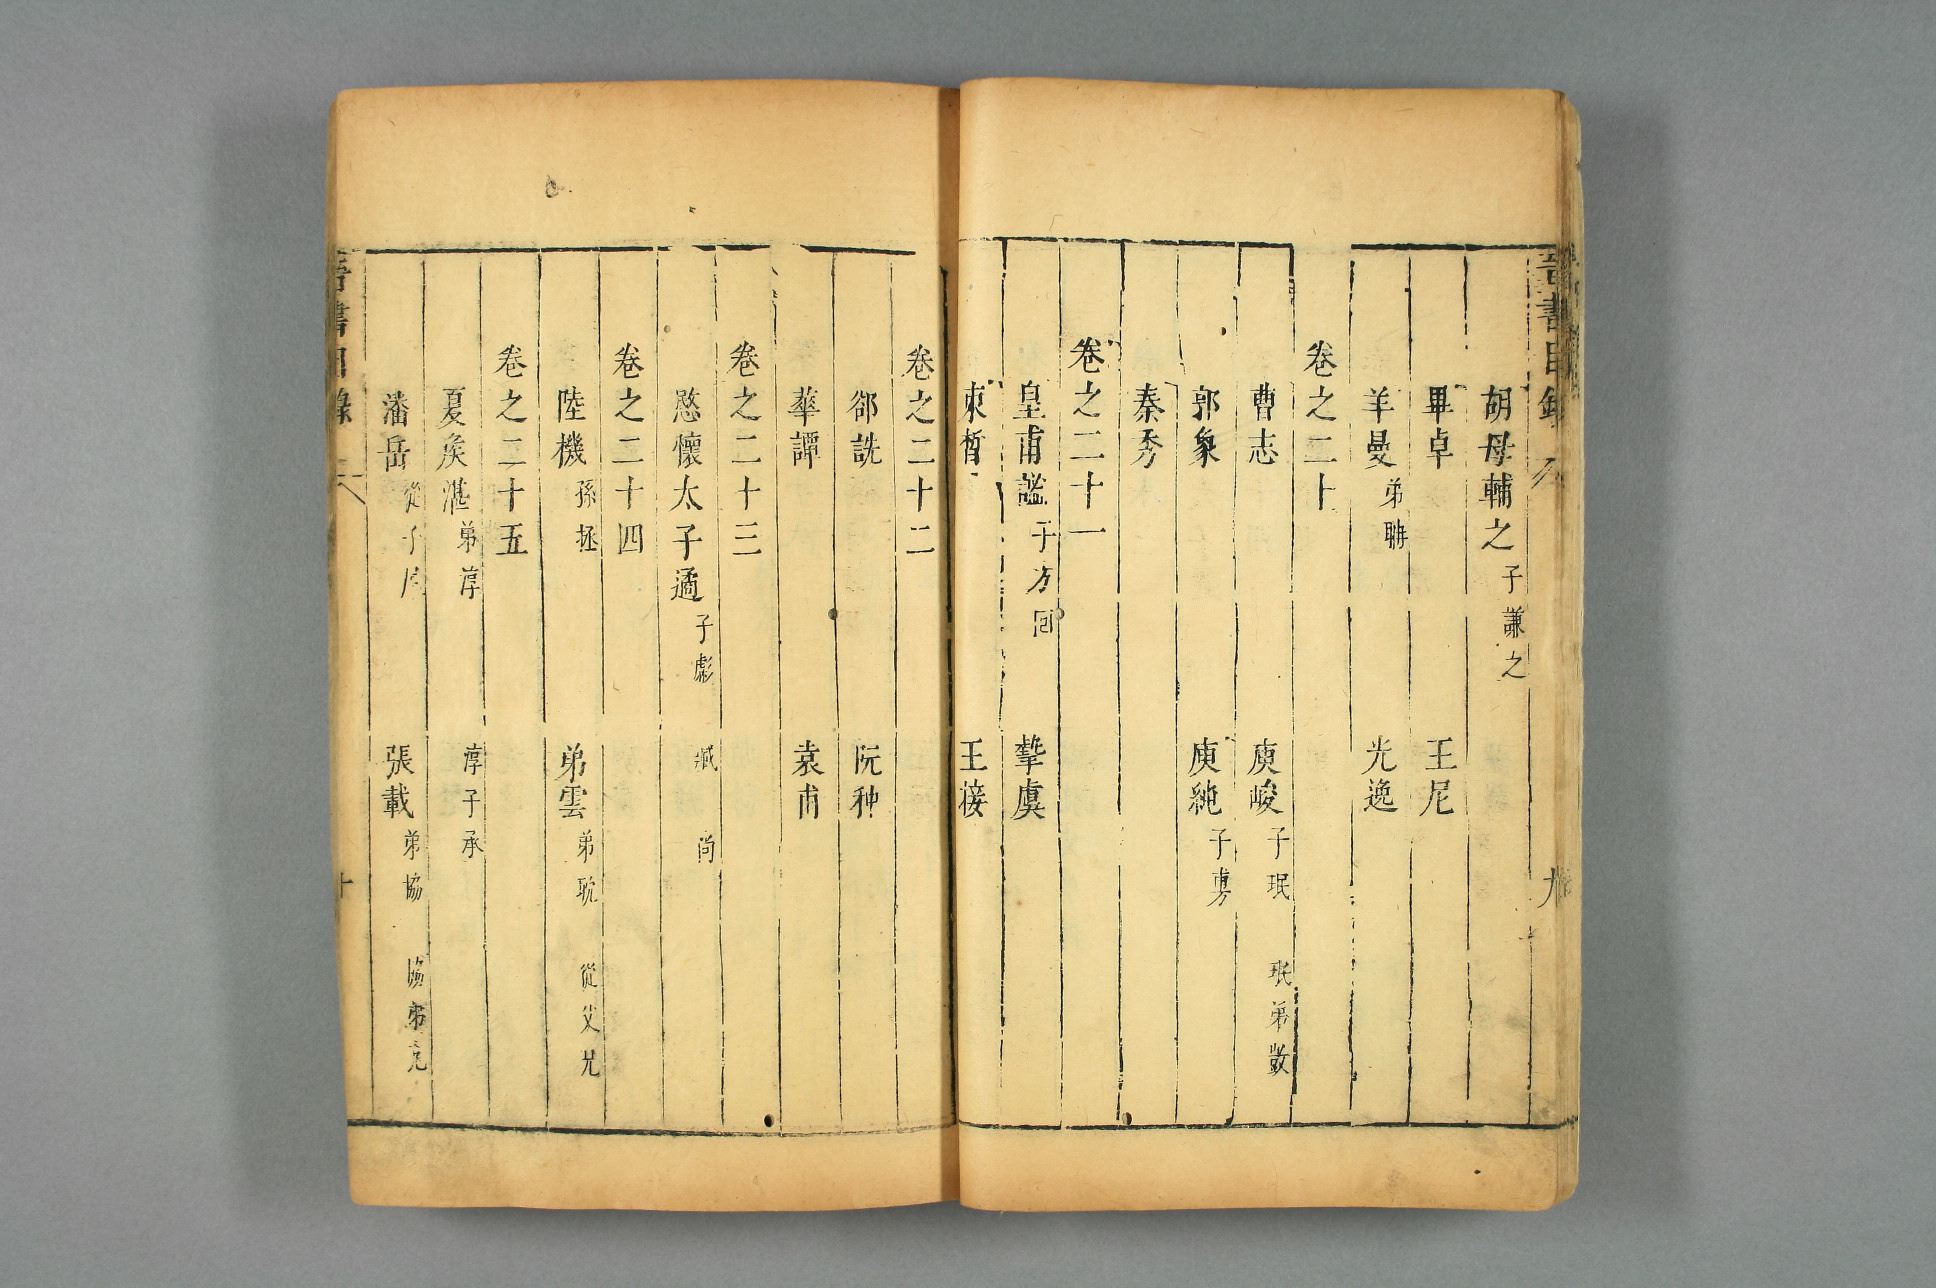 晉書目錄 九
胡母輔之 子謙之
畢卓 王尼
羊曼 弟聃 光逸
卷之二十
曹志 庾峻 子珉 珉弟敳
郭象 庾純 子旉
秦秀
卷之二十一
皇甫謐 子方回 摯虞
束晳 王接
卷之二十二
郤詵 阮种
華譚 袁甫
卷之二十三
愍懷太子遹 子虨 臧 尚
卷之二十四
陸機 孫拯 弟雲 弟耽 從父兄
卷之二十五
夏矦湛 弟淳 淳子承
潘岳 從子尼 張載 弟協 協弟亢
晉書目錄 十